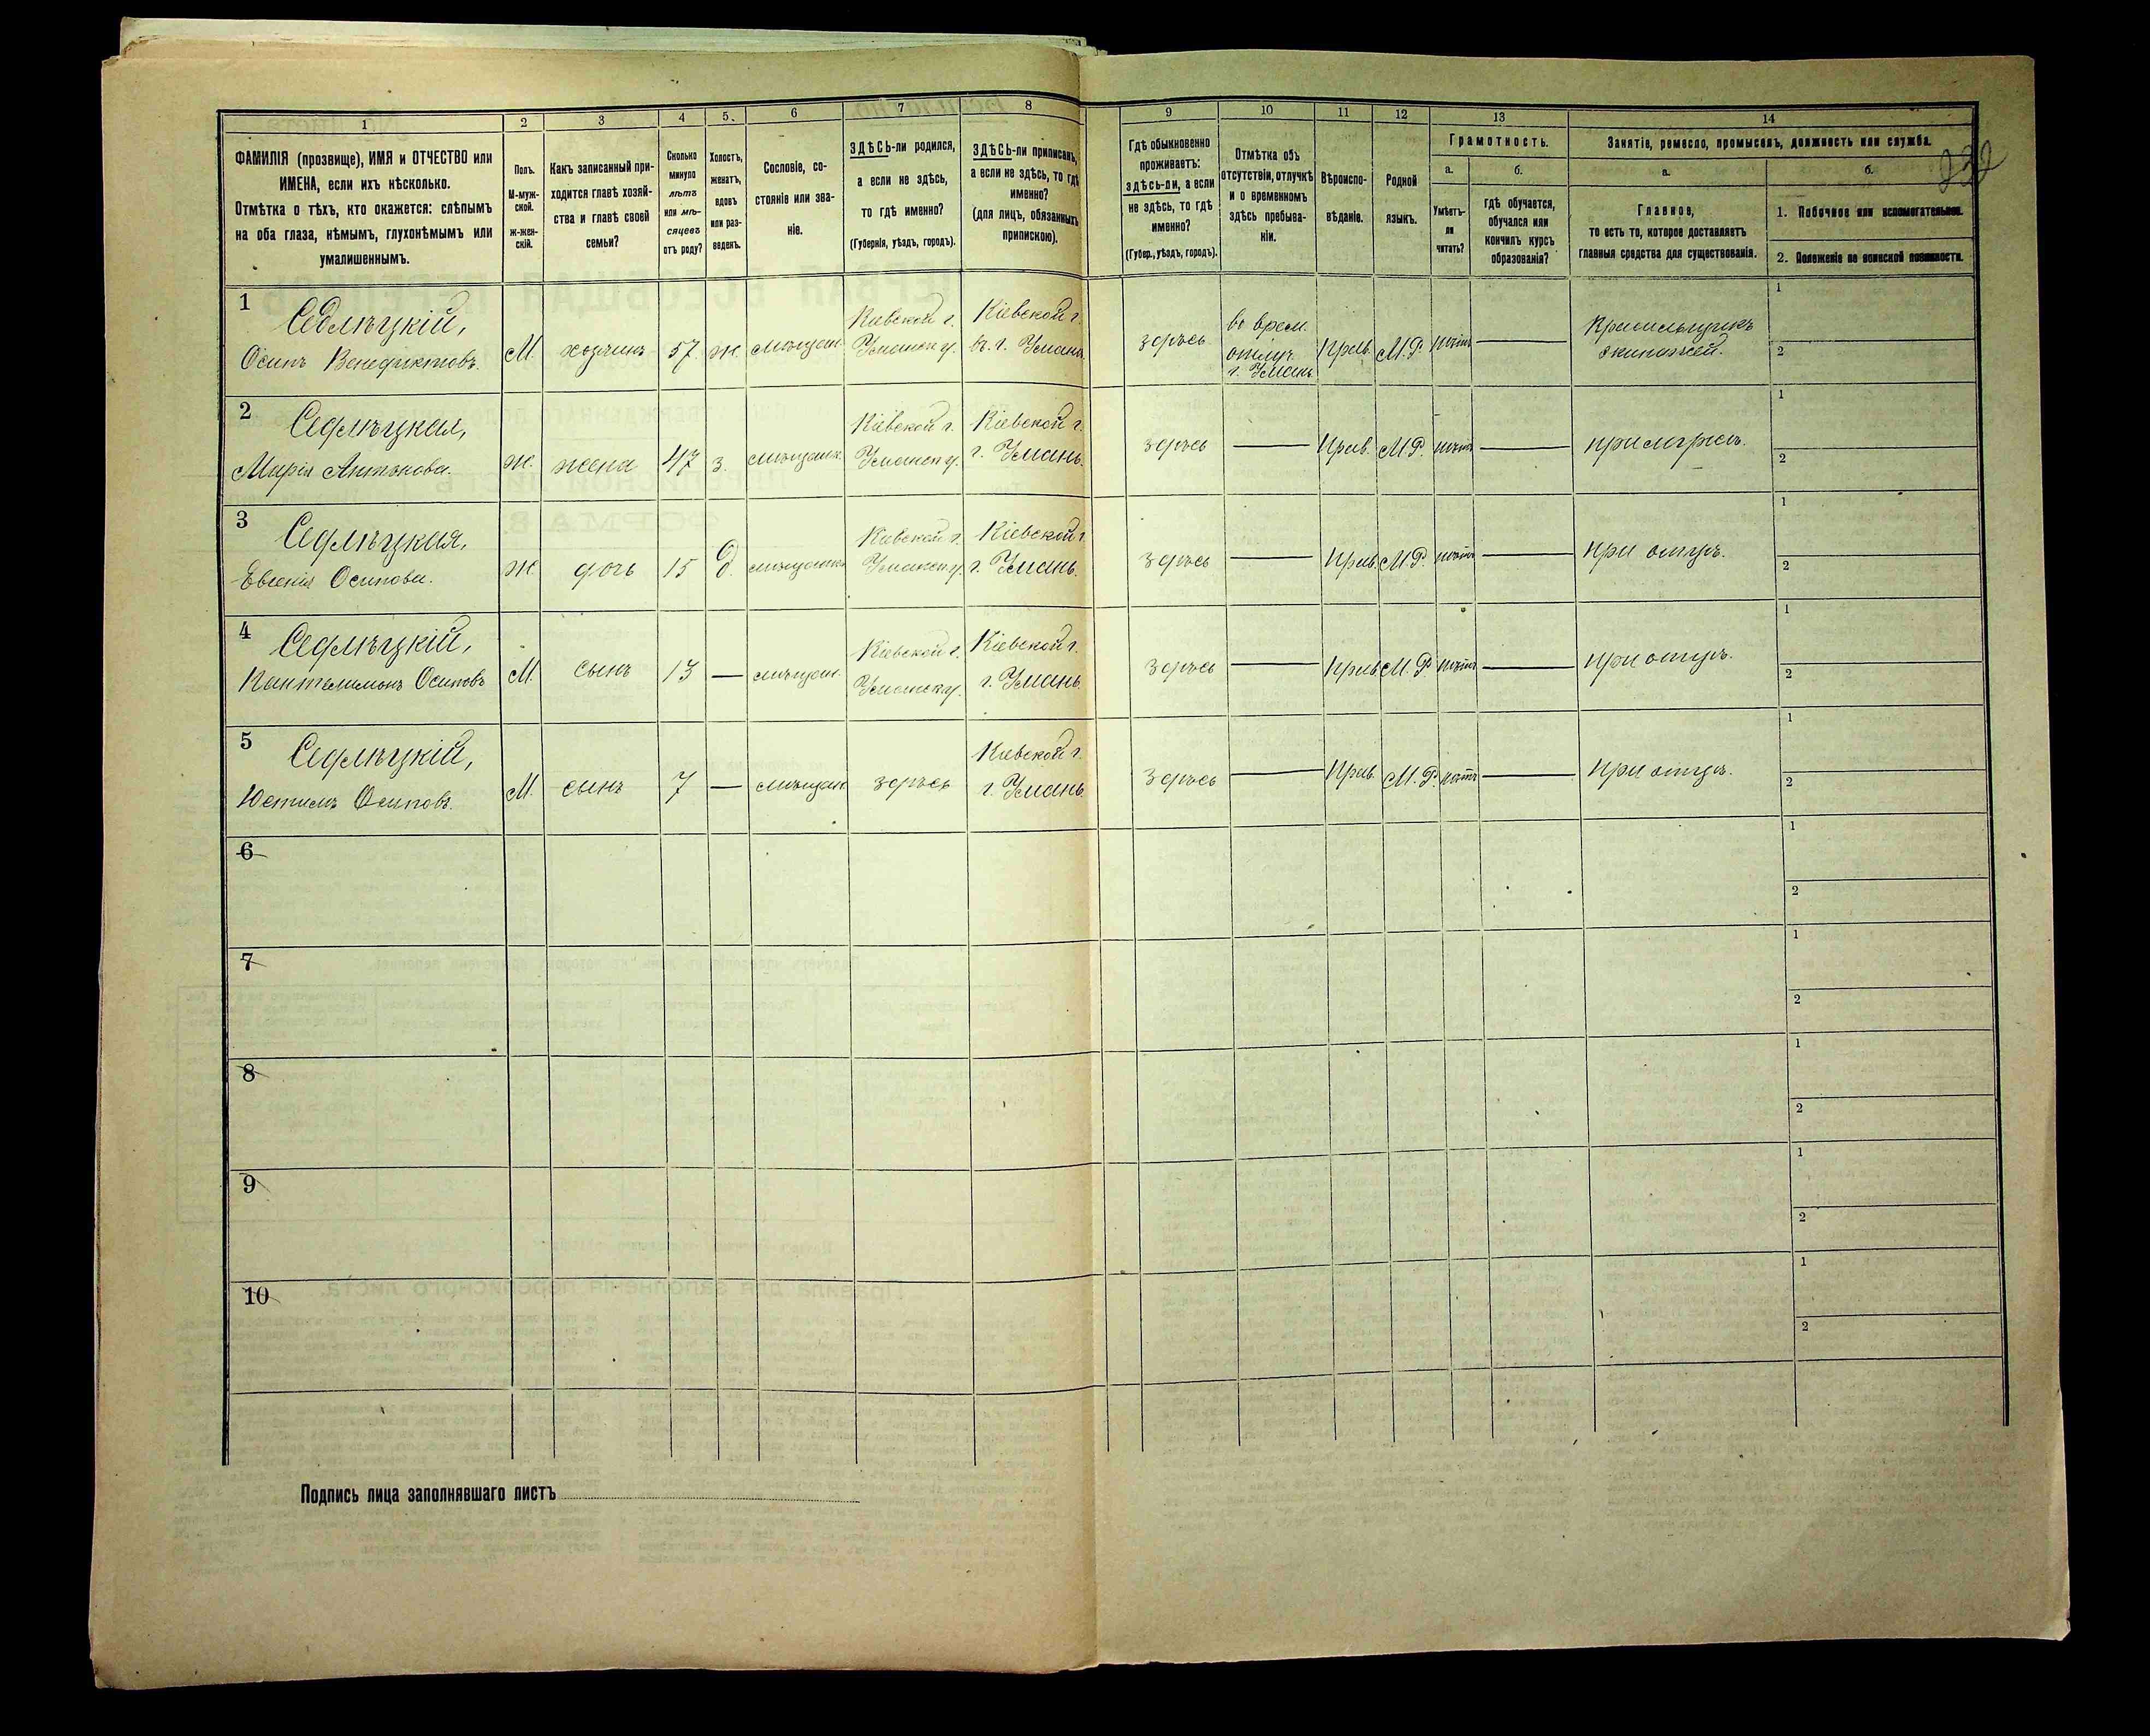 1
2
3
4
5.
6
7
8
9
10
11
12
13
14
232
ФАМИЛІЯ (прозвище), ИМЯ и ОТЧЕСТВО или
ИМЕНА, если ихъ нѣсколько.
Отмѣтка о тѣхъ, кто окажется: слѣпымъ
на оба глаза, нѣмымъ, глухонѣмымъ или
умалишеннымъ.
Полъ.
М-муж-
ской.
ж-жен-
скій.
Какъ записанный при-
ходится главѣ хозяй-
ства и главѣ своей
семьи?
Сколько
минуло
лѣтъ
или мѣ-
сяцевъ
отъ роду?
Холостъ,
женатъ,
вдовъ
или раз-
веденъ.
Сословіе, со-
стояніе или зва-
ніе.
ЗДѢСЬ-ли родился,
а если не здѣсь,
то гдѣ именно?
(Губернія, уѣздъ, городъ).
ЗДѢСЬ-ли приписанъ,
а если не здѣсь, то гдѣ
именно?
(для лицъ, обязанныхъ
припискою).
Гдѣ обыкновенно
проживаетъ:
здѣсь-ли, а если
не здѣсь, то гдѣ
именно?
(Губер., уѣздъ, городъ).
Отмѣтка объ
отсутствіи, отлучкѣ
и о временномъ
здѣсь пребыва-
ніи.
Вѣроиспо-
вѣданіе.
Родной
языкъ.
Грамотность.
а.
Умѣетъ-
ли
читать?
б.
Гдѣ обучается,
обучался или
кончилъ курсъ
образованія?
Занятіе, ремесло, промыселъ, должность или служба.
а.
Главное,
то есть то, которое доставляетъ
главныя средства для существованія.
б.
1. Побочное или вспомогательное.
2. Положеніе по воинской повинности.
1
Седлѣцкій,
Осипъ Венедиктовъ.
М.
хозяинъ
57
ж.
мѣщан.
Кіевской г.
Уманск у.
Кіевской г.
въ г. Умань
здѣсь
во врем.
отлуч.
г. Умань
Прав.
М.Р.
нѣтъ
Красильщикъ
экипажей.
1
2
2
Седлѣцкая,
Марія Антонова.
ж.
жена
47
з.
мѣщанк.
Кіевской г.
Уманск у.
Кіевской г.
г. Умань.
здѣсь
Прав.
М.Р.
нѣтъ
при мужѣ.
1
2
3
Седлѣцкая,
Евгенія Осипова.
ж.
дочь
15
д.
мѣщанка
Кіевской г.
Уманск у.
Кіевской г.
г. Умань.
здѣсь
Прав.
М.Р.
нѣтъ
при отцѣ.
1
2
4
Седлѣцкій,
Пантелимонъ Осиповъ
М.
сынъ
13
мѣщан.
Кіевской г.
Уманск у.
Кіевской г.
г. Умань.
здѣсь
Прав.
М.Р.
нѣтъ
при отцѣ.
1
2
5
Седлѣцкій,
Юстимъ Осиповъ.
М.
сынъ
7
мѣщан.
здѣсь
Кіевской г.
г. Умань
здѣсь
Прав.
М.Р.
нѣтъ
при отцѣ.
1
2
6
1
2
7
1
2
8
1
2
9
1
2
10
1
2
Подпись лица заполнявшаго листъ